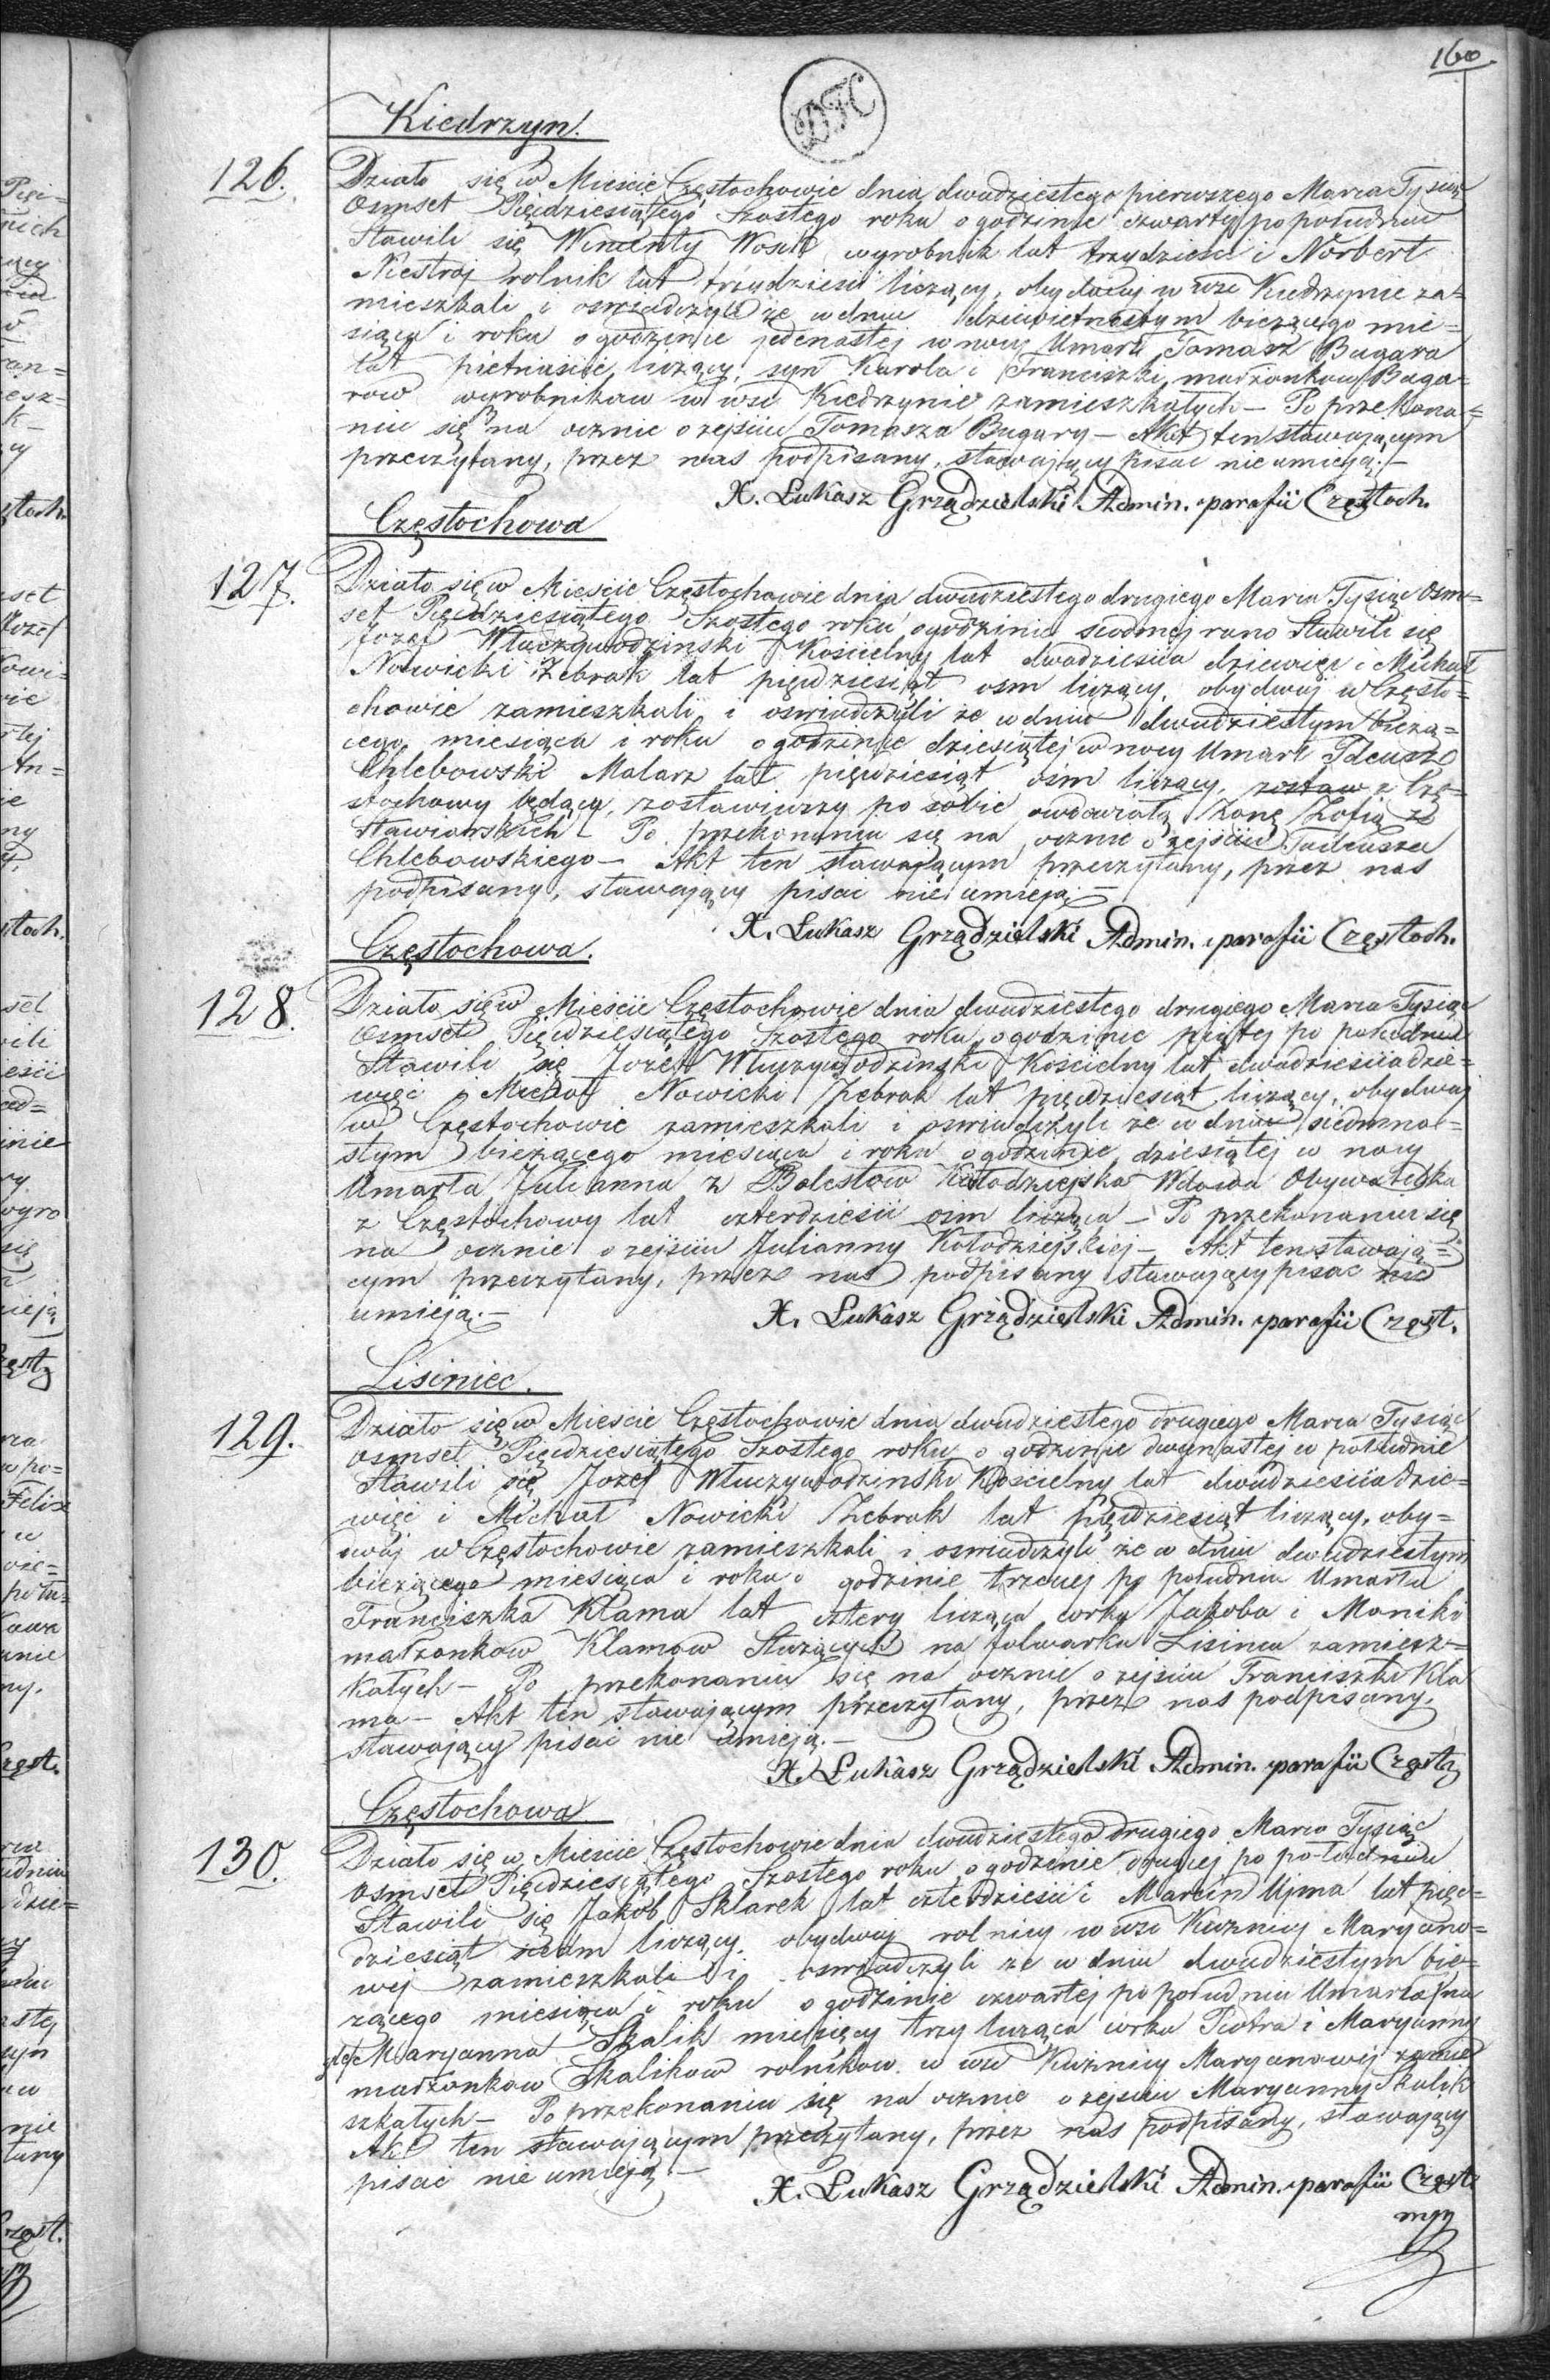 160.
DTC
Kiedrzyn.
126. Działo się w Mieście Częstochowie dnia dwudziestego pierwszego Marca Tysiąc
Osmset Pięcdziesiątego Szostego roku o godzinie czwartey po południu
Stawili się Wincenty Wosik wyrobnik lat trzydzieści i Norbert
Niestroj rolnik lat trzydzieści liczący, obydway w wsi Kiedrzynie za=
mieszkali i oswiadczyli że w dniu dziewietnastym bieżącego mie=
siąca i roku o godzinie jedenastej w nocy Umarł Tomasz Bugara
lat pietnaście liczący, syn Karola i Franciszki małżonkow Buga=
row wyrobnikow w wsi Kiedrzynie zamieszkałych – Po przekona=
niu się na ocznie o zejściu Tomasza Bugary – Akt ten stawającym
przeczytany, przez nas podpisany, stawający pisac nie umieją. –
X. Łukasz Grządzielski Admin. parafii Częstoch.
Częstochowa
127. Działo się w Mieście Częstochowie dnia dwudziestego drugiego Marca Tysiąc Osm=
set Pięcdziesiątego Szostego roku o godzinie siodmej rano Stawili się
Jozef Włuczywodzinski Kościelny lat dwadzieścia dziewięc i Michał
Nowicki Żebrak lat pięcdziesiąt osm liczący, obydwaj w Często=
chowie zamieszkali i oswiadczyli że w dniu dwudziestym bieżą=
cego miesiąca i roku o godzinie dziesiątej w nocy Umarł Tdeusz
Chlebowski Malarz lat pięcdziesiąt osm liczący, zostaw z Czę=
stochowy będący, zostawiwszy po sobie owdowiałą Żonę Zofią z
Stawiarskich – Po przekonaniu się na ocznie o zejściu Tadeusza
Chlebowskiego – Akt ten stawającym przeczytany, przez nas
podpisany, stawający pisac nie umieją –
X. Łukasz Grządzielski Admin. parafii Częstoch.
Częstochowa.
128. Działo się w Mieście Częstochowie dnia dwudziestego drugiego Marca Tysiąc
Osmset Pięcdziesiątego Szostego roku o godzinie piątej po południu
Stawili się Jozef Włuczywodzinski Kościelny lat dwadzieścia dzie=
więć i Michał Nowicki Żebrak lat pięcdziesiąt liczący, obydwaj
w Częstochowie zamieszkali i oswiadczyli że w dniu siedmna=
stym bieżącego miesiąca i roku o godzinie dziesiątej w nocy
Umarła Julianna z Bolestow Kołodziejska Wdowa Obywatelka
z Częstochowy lat czterdzieści osm licząca – Po przekonaniu się
na ocznie o zejściu Julianny Kołodziejskiej – Akt ten stawają=
cym przeczytany, przez nas podpisany stawający pisac nie
umieją. –
X. Łukasz Grządzielski Admin. parafii Częst.
Lisiniec.
129. Działo się w Mieście Częstochowie dnia dwudziestego drugiego Marca Tysiąc
osmset Pięcdziesiątego Szostego roku o godzinie dwynastej w południe
Stawili się Jozef Włuczywodzinski Kościelny lat dwadzieścia dzie=
więc i Michał Nowicki Żebrak lat pięcdziesiąt liczący, oby=
dwaj w Częstochowie zamieszkali i oswiadczyli że w dniu dwudziestym
bieżącego miesiąca i roku o godzinie trzeciej po południu Umarła
Franciszka Klama lat cztery licząca corka Jakoba i Moniki
małżonkow Klamow Służących na folwarku Lisincu zamiesz=
kałych – Po przekonaniu się na ocznie o zejściu Franciszki Kla
ma – Akt ten stawającym przeczytany, przez nas podpisany,
stawający pisac nie umieją. –
X. Łukasz Grządzielski Admin. parafii Częst.
Częstochowa
130. Działo się w Mieście Częstochowie dnia dwudziestego drugiego Marca Tysiąc
osmset Pięcdziesiątego Szostego roku o godzinie drugiej po południu
Stawili się Jakób Sklarek lat czterdzieści i Marcin Ujma lat pięc=
dziesiąt liczący, obydwaj rolnicy w wsi Kuznicy Maryano=
wej zamieszkali i oswiadczyli że w dniu dwudziestym bie=
zącego miesiąca i roku o godzinie czwartej po południu Umarła
Maryanna Skalik miesięcy trzy licząca corka Piotra i Maryanny
małżonkow Skalikow rolnikow w wsi Kuźnicy Maryanowej zamie
szkałych – Po przekonaniu się na ocznie o zejściu Maryanny Skalik
Akt ten stawającym przeczytany, przez nas podpisany, stawający
pisac nie umieją. –
X. Łukasz Grządzielski Admin. parafii Częst.